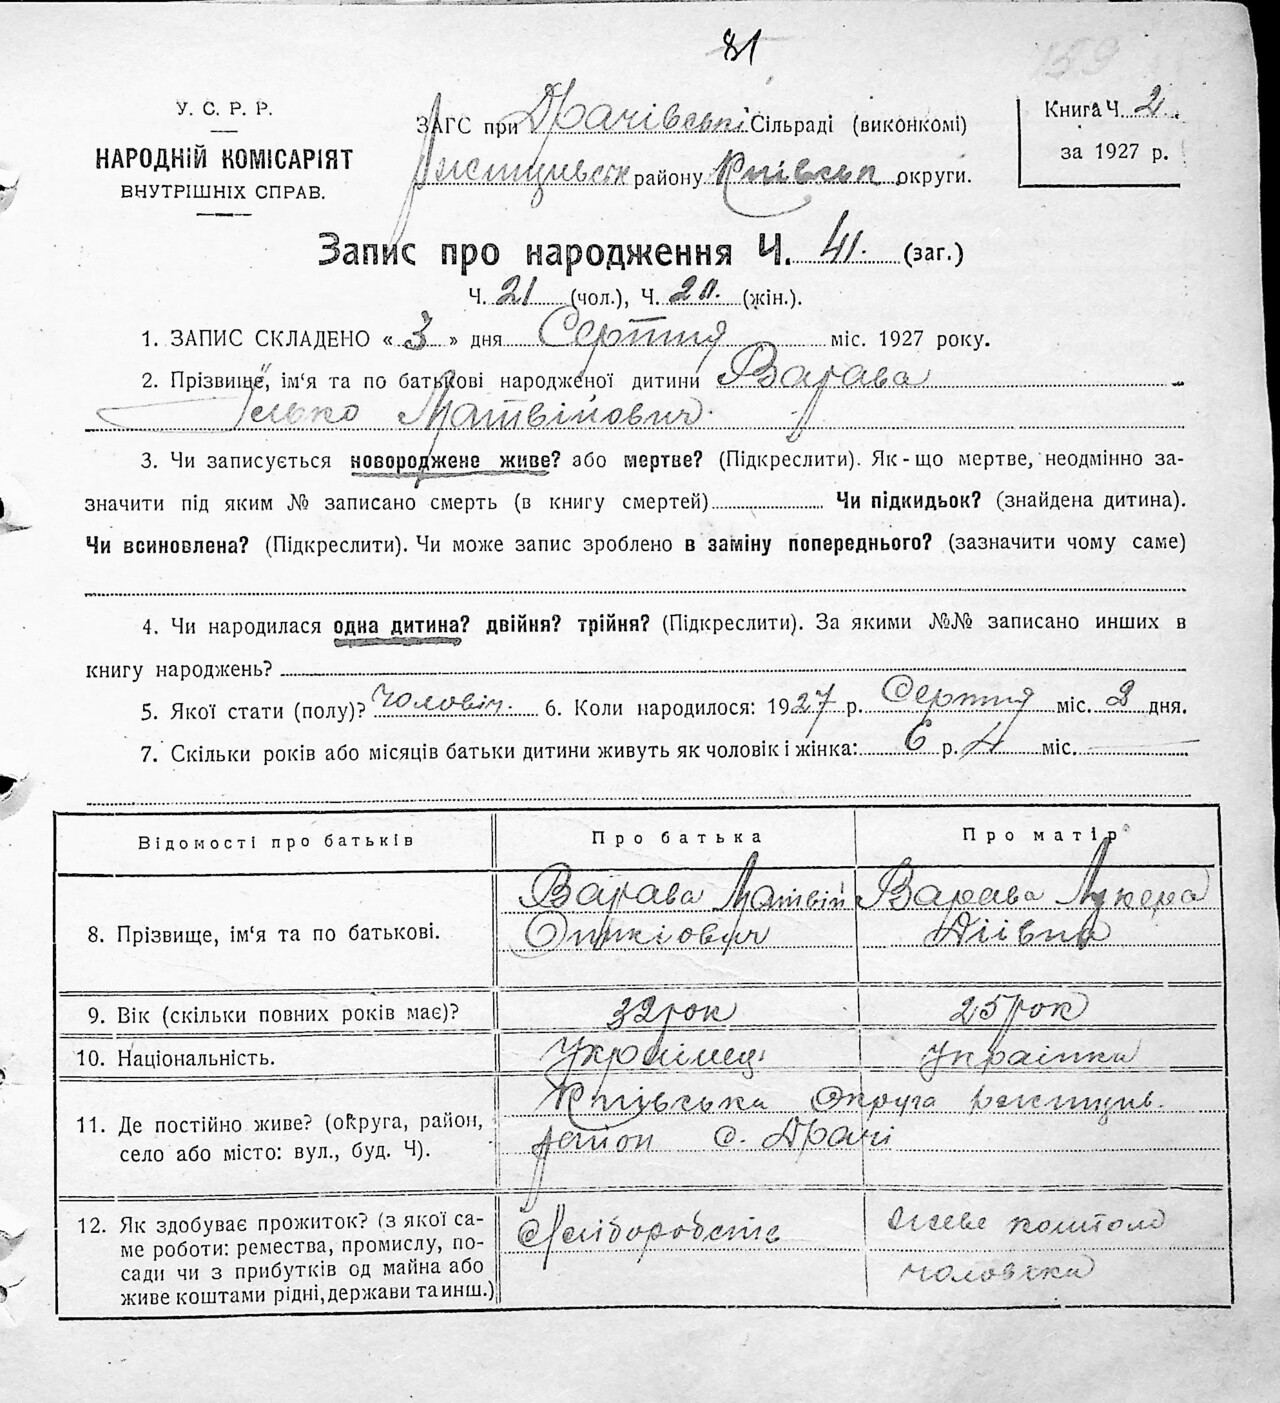 81
159
У. С. Р. Р.
НАРОДНІЙ КОМІСАРІЯТ
ВНУТРІШНІХ СПРАВ.
ЗАГС при Драчівські Сільраді (виконкомі)
району Київськ округи.
Книга Ч. 2.
за 1927 р.
Запис про народження Ч. 41. (заг.)
Ч. 21 (чол.), Ч. 20. (жін.).
1. ЗАПИС СКЛАДЕНО « 3 » дня Серпня міс. 1927 року.
2. Прізвище, ім‘я та по батькові народженої дитини Варава
Ілько Матвійович.
3. Чи записується новороджене живе? або мертве? (Підкреслити). Як-що мертве, неодмінно за-
значити під яким № записано смерть (в книгу смертей) Чи підкидьок? (знайдена дитина).
Чи всиновлена? (Підкреслити). Чи може запис зроблено в заміну попереднього? (зазначити чому саме)
4. Чи народилася одна дитина? двійня? трійня? (Підкреслити). За якими №№ записано инших в
книгу народжень?
5. Якої стати (полу)? Чоловіч. 6. Коли народилося: 1927 р. Серпня міс. 2 дня.
7. Скільки років або місяців батьки дитини живуть як чоловік і жінка: 6 р. 4 міс.
Відомості про батьків
Про батька
Про матір
8. Прізвище, ім‘я та по батькові.
Варава Матвій
Варава Лукера
9. Вік (скільки повних років має)?
32 рок
25 рок
10. Національність.
Українец
Українка
11. Де постійно живе? (округа, район,
село або місто: вул., буд. Ч).
Київська Округа
район с. Драчі
12. Як здобуває прожиток? (з якої са-
ме роботи: ремества, промислу, по-
сади чи з прибутків од майна або
живе коштами рідні, держави та инш.)
Хліборобств
живе коштом
чоловіка